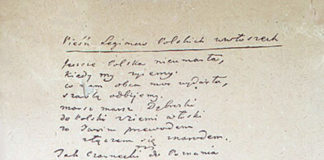 Pieśń Legionów Polskich we Włoszech
Jeszcze Polska nieumarła,
kiedy my żyiemy.
co nam obca moc wydarła,
szablą odbijemy.
marsz marsz Dąbrowski
do Polski z ziemi włoski
za Twoim przewodem
złączem się z narodem.
Jak Czarnecki do Poznania